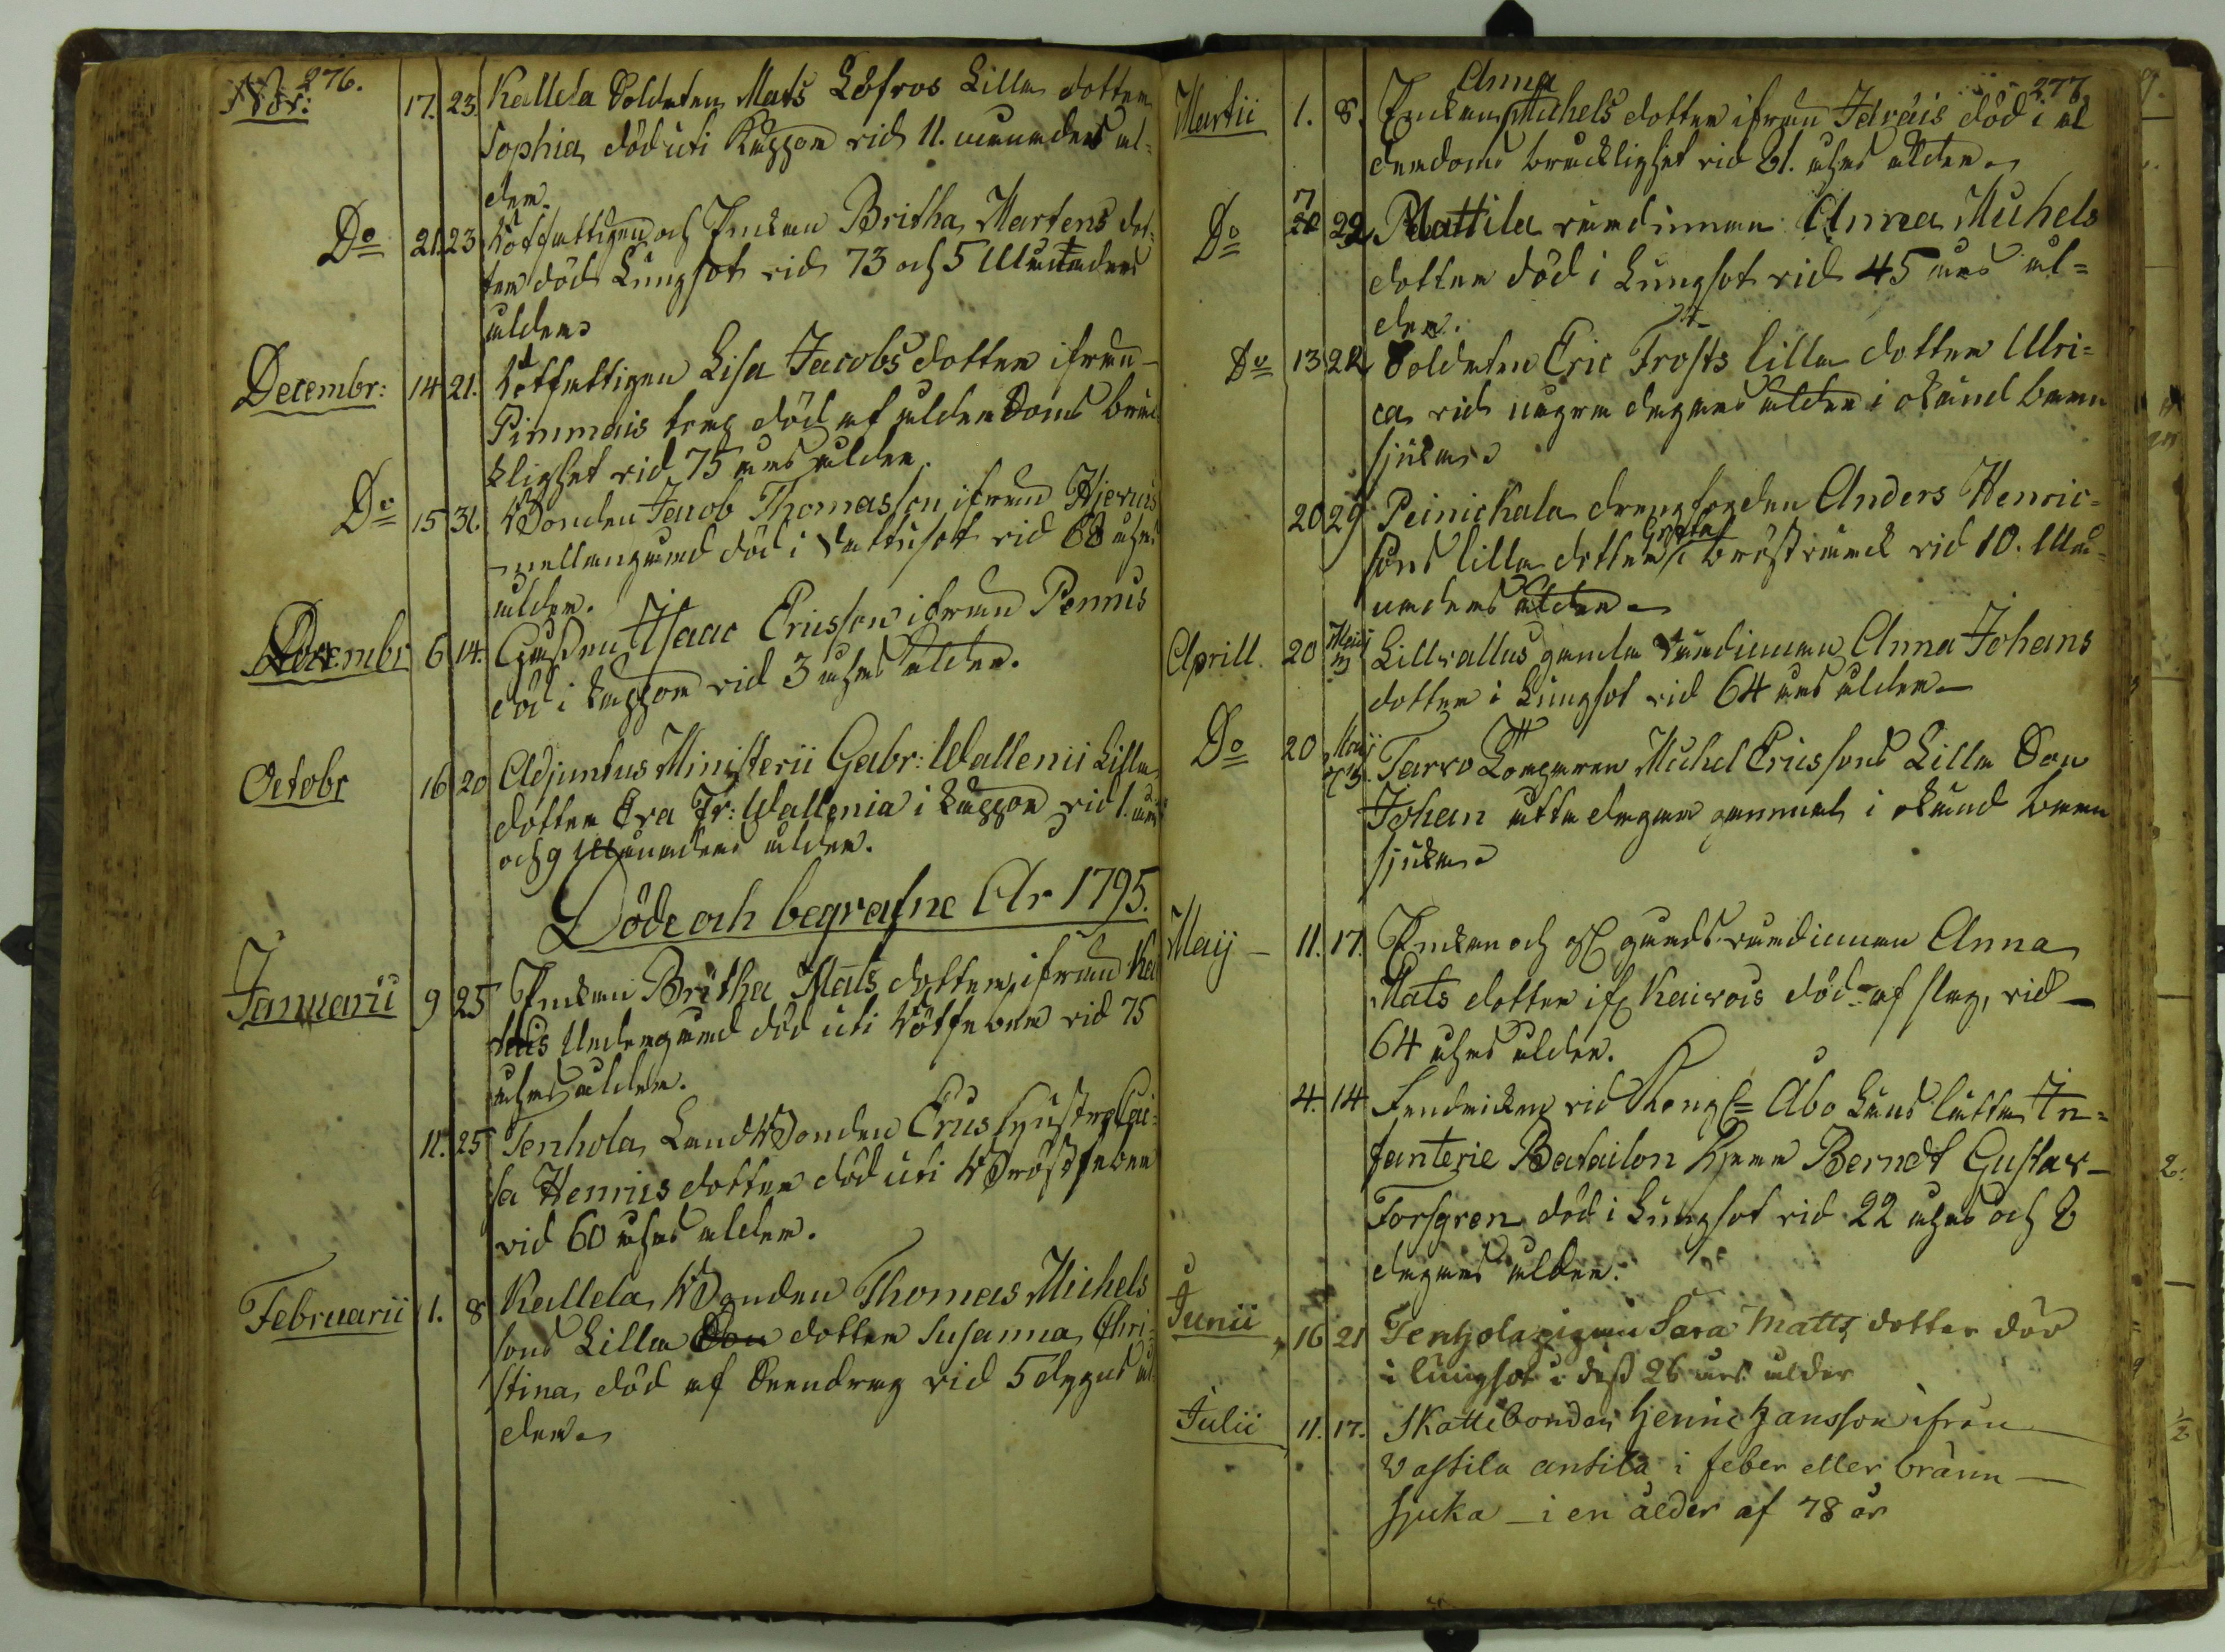 276.
Nov: 17. 23. Kallela Soldaten Mats Löfros Lilla dotter
Sophia, död uti Koppor vid 11. månaders ål=
der.
Do 21. 23 Rotfattigen och Enkan Britha Martens dot=
ter död Lungsot vid 73 och 5 Månaders
ålder
Decembr: 14 21. Rotfattigen Lisa Jacobs dotter ifrån
Pimmais torp död af ålderdoms bräc
klighet vid 75 års ålder.
Do 15 31. Bonden Jacob Thomasson ifrån Hiervis
mellangård död i Vattusot vid 68 åhrs
ålder.
Novembr 6 14. Gossen Isaac Ericsson ifrån Pennus
död i koppor vid 3 åhrs ålder.
Octobr 16 20 Adjunctus Ministerii Gabr: Wallenii Lilla
dotter Eva Fr: Wallenia i koppor vid 1. års
och 9 Månaders ålder.
Döde och begrafne År 1795.
Januarii 9 25 Enkan Britha Mats dotter ifrån
Undergård död uti Rötfeber vid 75
åhrs ålder.
11. 25 Tenhola Landbonden Erics hustru Cai=
sa Henrics dotter död uti Bröstfeber
vid 60 åhrs ålder.
Februarii 1. 8 Kallela, Bonden Thomas Michels
sons Lilla Son dotter Susanna Chri=
stina, död af vid 5 dygns ål
der.
277.
Anna
Martii 1. 8. Enkan Michels dotter ifrån Idrais död i ål
derdoms bräcklighet vid 81. åhrs ålder.
Do 7 22 Mattila värdinnan Anna Michels
dotter död i Lungsot vid 45 års ål=
der.
Do 13 22 Soldaten Eric Frosts lilla dotter Ulri=
ca vid några dagars ålder i okänd barn
sjuka.
20 29 Peinickala drengfogden Anders Henric=
sons lilla dotter Greta i bröstvärck vid 10. Må=
naders ålder.
Aprill. 20 Maij 3 Lillvallus gamla värdinnan Anna Johans
dotter i Lungsot vid 64 års ålder
Do 20 Maij 3. Tarvo Torparen Michel Ericssons Lilla Son
Johan åtta dagar gammal i okänd barn
sjuka.
Maij 11. 17. Enkan och gårds värdinnan Anna
Mats dotter ifr Kaivois död af slag, vid
64 åhrs ålder.
4. 14 Fendricken vid Kongl. Åbo Läns lätta In=
fanterie Batailon Herr Berndt Gustav
Forsgren död i Lungsot vid 22 åhrs och 8
dagars ålder.
Junii 16 21 Tenhola pigan Sara Matts dotter död
i lungsot i dess 26 års ålder
Julii 11. 17. Skattebonden Henric Jansson ifrån
Vastila antila i feber eller bränn
sjuka i en ålder af 78 år